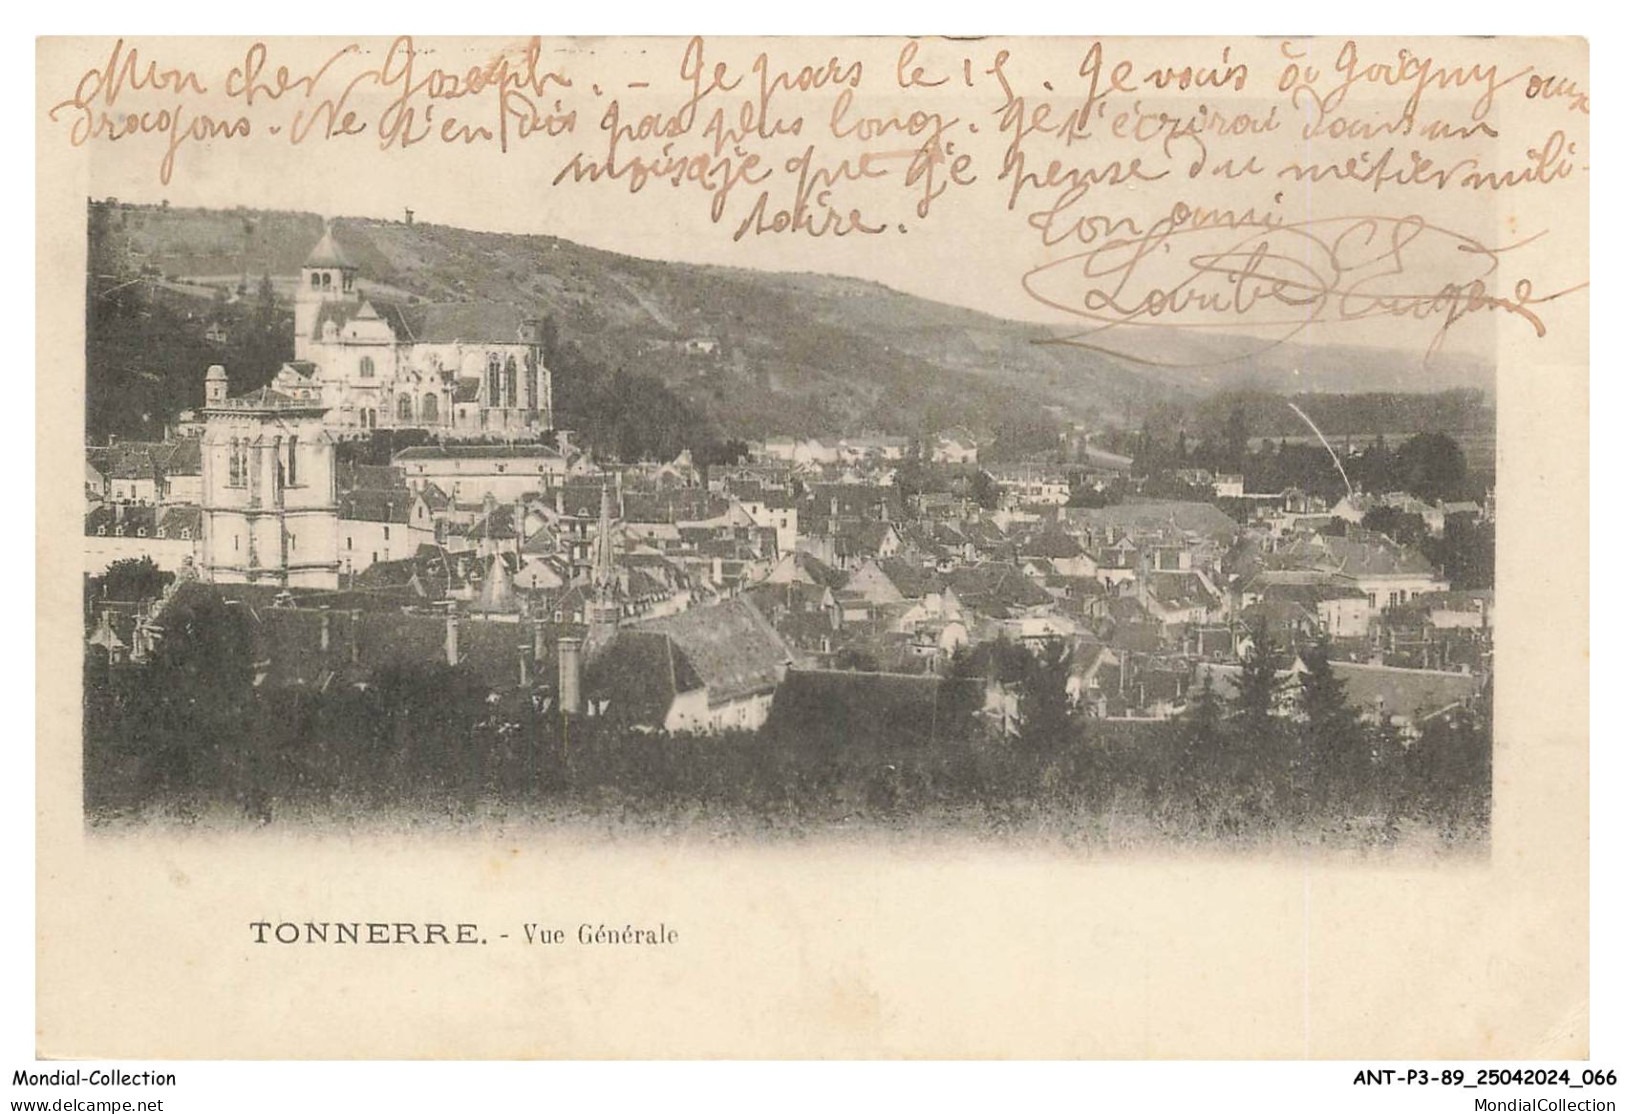 Mon cher Joseph. - Je pars le 15. Je vais à Joigny aux
dragons. Ne t'en dis pas plus long. Je t'écrirai dans un
mois ce que je pense du métier mili-
taire. Ton ami
Eugène
TONNERRE. - Vue Générale
Mondial-Collection
ANT-P3-89_25042024_066
delcampe.net
MondialCollection